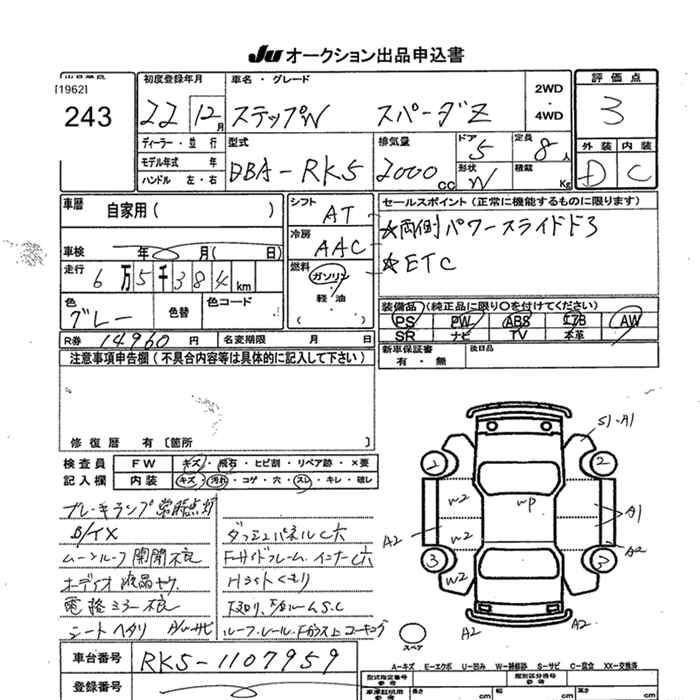 Ju オークション出品申込書
[1962]
243
初度登録年月
22 12月
車名・グレード
ステップW スパーダZ
2WD
4WD
評価点
3
外装 内装
D C
ディーラー・並行
モデル年式 年
ハンドル 左・右
型式
DBA-RK5
排気量
2000 cc
ドア
5
形状
W
定員
8人
積載
Kg
車歴 自家用( )
車検 年 月( 日)
走行
6万5千384km
色
グレー
色替
色コード
シフト
AT
冷房
AAC
燃料
ガソリン
・
軽油
( )
セールスポイント(正常に機能するものに限ります)
☆両側パワースライドドア
☆ETC
装備品(純正品に限り〇を付けてください)
PS PW ABS エアB AW
SR ナビ TV 本革
R券 14960円
名変期限 月 日
新車保証書
有・無
後日品
注意事項申告欄(不具合内容等は具体的に記入して下さい)
修復歴 有〔箇所 〕
検査員
記入欄
FW キズ・飛石・ヒビ割・リペア跡・×要
内装 キズ・汚れ・コゲ・穴・スレ・キレ・破レ
ブレーキランプ常時点灯
B/イX
ムーンルーフ開閉不良
オーディオ液晶
電格ミラー不良
シートヘタリ
ダッシュパネルC穴
Fサイドフレーム、インナーC穴
Hライトくもり
S.C
ルーフレール、Fガラス上コーキング
S1-A1
2
2
W2
W2
W2
WP
A1
A2
A2
3
3
A2
A2
スペア
車台番号 RK5-1107959
登録番号
A=キズ E=エクボ U=凹み W=補修跡 S=サビ C=腐食 XX=交換済
型式指定番号
参考
類別区分番号
参考
長さ cm
cm
cm